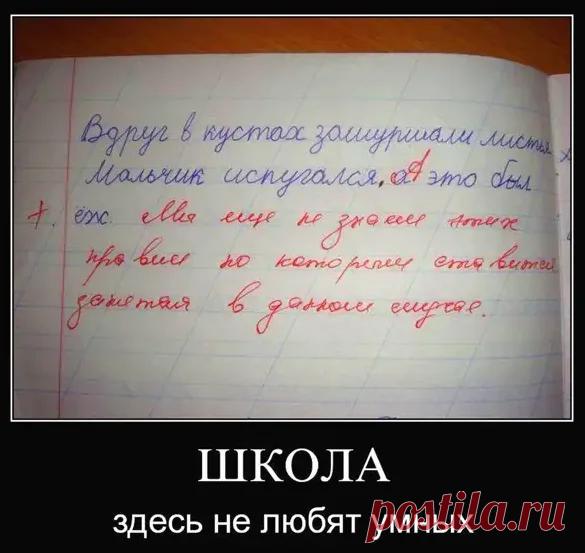 Вдруг в кустах зашуршали листья
Мальчик испугался, А это был
ёж. Мы еще не знаем этих
правил по которым ставится
запятая в данном случае.
ШКОЛА
здесь не любят умных
postila.ru